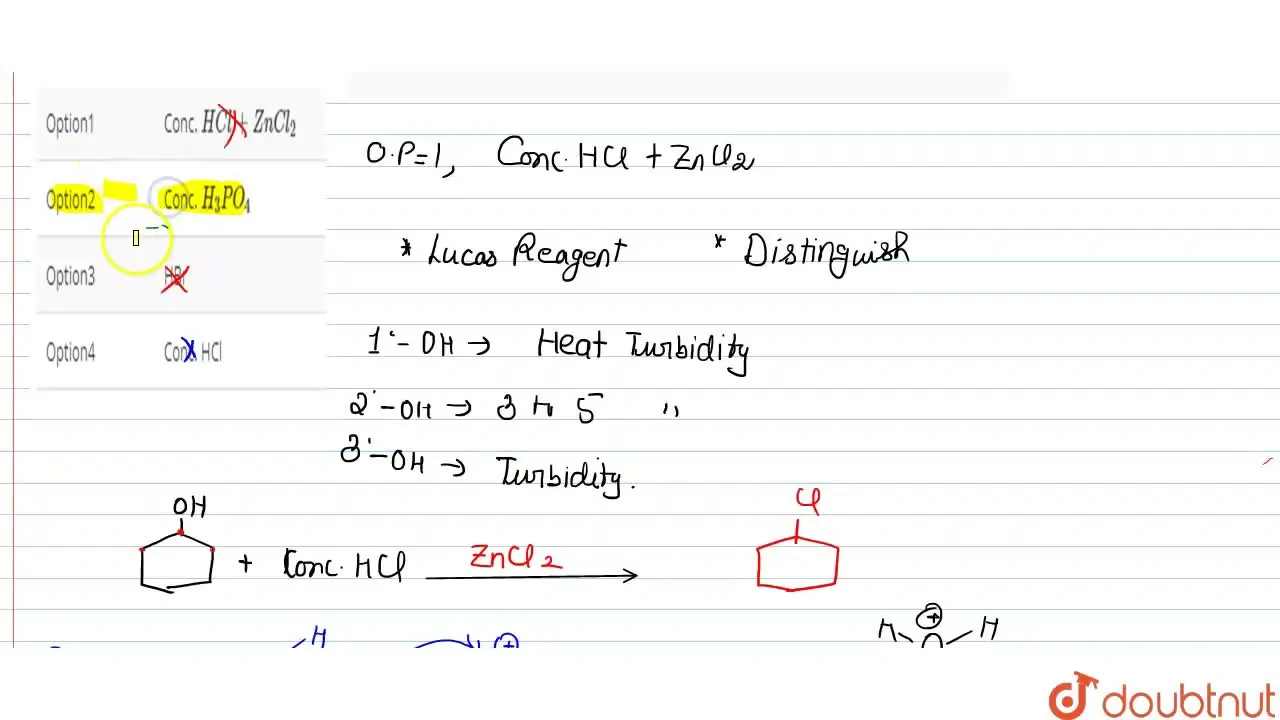 Option1 Conc. HCl + ZnCl2
Option2 Conc. H3PO4
Option3 HBr
Option4 Conc. HCl
O.P=1, Conc. HCl + ZnCl2
* Lucas Reagent * Distinguish
1°-OH → Heat Turbidity
2°-OH → 3 to 5 "
3°-OH → Turbidity.
OH
Cl
+ Conc. HCl ZnCl2
H
+
H + H
doubtnut